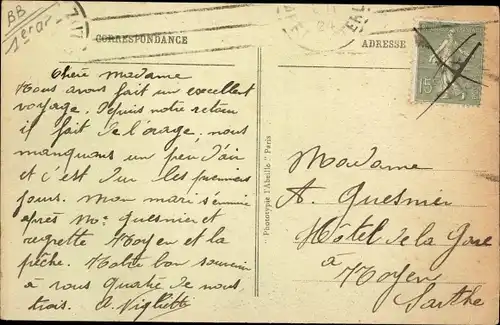 BB
1er ar.
CORRESPONDANCE
Chère Madame
Nous avons fait un excellent
voyage. Depuis notre retour
il fait de l'orage, nous
manquons un peu d'air
et c'est dur les premiers
jours. Mon mari s'ennuie
après Mr Guesnier et
regrette Noyen et la
pêche. Notre bon souvenir
à vous quatre de nous
trois.
"Phototypie l'Abeille" Paris
ADRESSE
15
Madame
A. Guesnier
Hôtel de la Gare
à Noyen
Sarthe